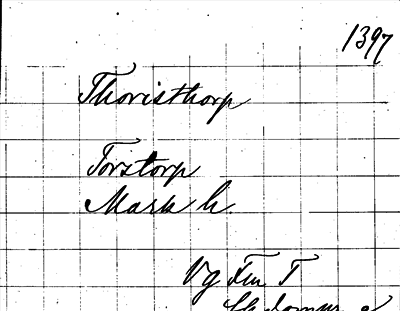 1397
Thoristhorp
Torstorp
Mark h.
Vg Fem T